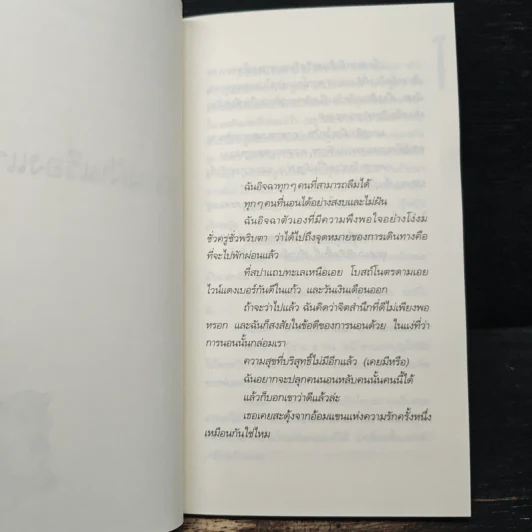 ฉันอิจฉาทุกๆ คนที่สามารถลืมได้
ทุกๆ คนที่นอนได้อย่างสงบและไม่ฝัน
ฉันอิจฉาตัวเองที่มีความพึงพอใจอย่างโง่งม
ชั่วครู่ชั่วพริบตา ว่าได้ไปถึงจุดหมายของการเดินทางคือ
ที่จะไปพักผ่อนแล้ว
ที่สปาแถบทะเลเหนือเอย โบสถ์โนตรดามเอย
ไวน์แดงเบอร์กันดีในแก้ว และวันเงินเดือนออก
ถ้าจะว่าไปแล้ว ฉันคิดว่าจิตสำนึกที่ดีไม่เพียงพอ
หรอก และฉันก็สงสัยในข้อดีของการนอนด้วย ในแง่ที่ว่า
การนอนนั้นกล่อมเรา
ความสุขที่บริสุทธิ์ไม่มีอีกแล้ว (เคยมีหรือ)
ฉันอยากจะปลุกคนนอนหลับคนนั้นคนนี้ได้
แล้วก็บอกเขาว่าดีแล้วล่ะ
เธอเคยสะดุ้งจากอ้อมแขนแห่งความรักครั้งหนึ่ง
เหมือนกันใช่ไหม